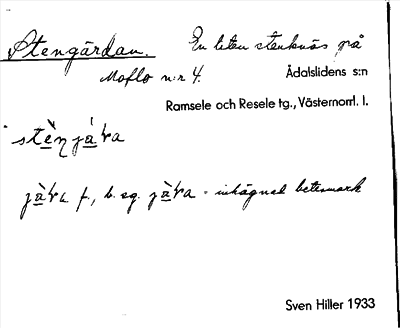 Stengärdan. En liten stenknös på
Moflo n:r 4. Ådalslidens s:n
Ramsele och Resele tg., Västernorrl. l.
stèŋ jàra
jàra f., b. sg. jàra = inhägnad betesmark
Sven Hiller 1933